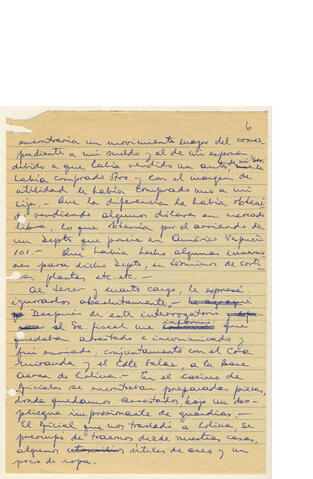 6
encontraría un movimiento mayor del corres
pondiente a mi sueldo y al de mi esposa
debido a que había vendido un auto
había comprado otro y con el margen de
utilidad le había comprado uno a mi
hija.- Que la diferencia la había obteni
do vendiendo algunos dólares en mercado
libre, lo que obtenía por el arriendo de
un Depto que poseía en Américo Vespucio
101.- Que había hecho algunas inversio
nes para dicho Depto, en términos de corti
nas, plantas, etc. etc.-
Al tercer y cuarto cargo, le expresé
ignorarlos absolutamente.-
Después de este interrogatorio
el Sr. fiscal me que
quedaba arrestado e incomunicado y
fui enviado, conjuntamente con el Cdte
Miranda y el Cdte Galaz, a la Base
Aérea de Colina.- En el casino de
Oficiales se encontraban preparadas piezas,
donde quedamos arrestados bajo un des-
pliegue impresionante de guardias.-
El Oficial que nos trasladó a Colina, se
preocupó de traernos desde nuestras casas,
algunos útiles de aseo y un
poco de ropa.-